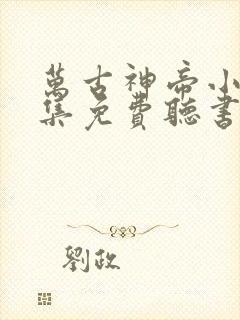 萬古神帝小
集免費聽書
劉政